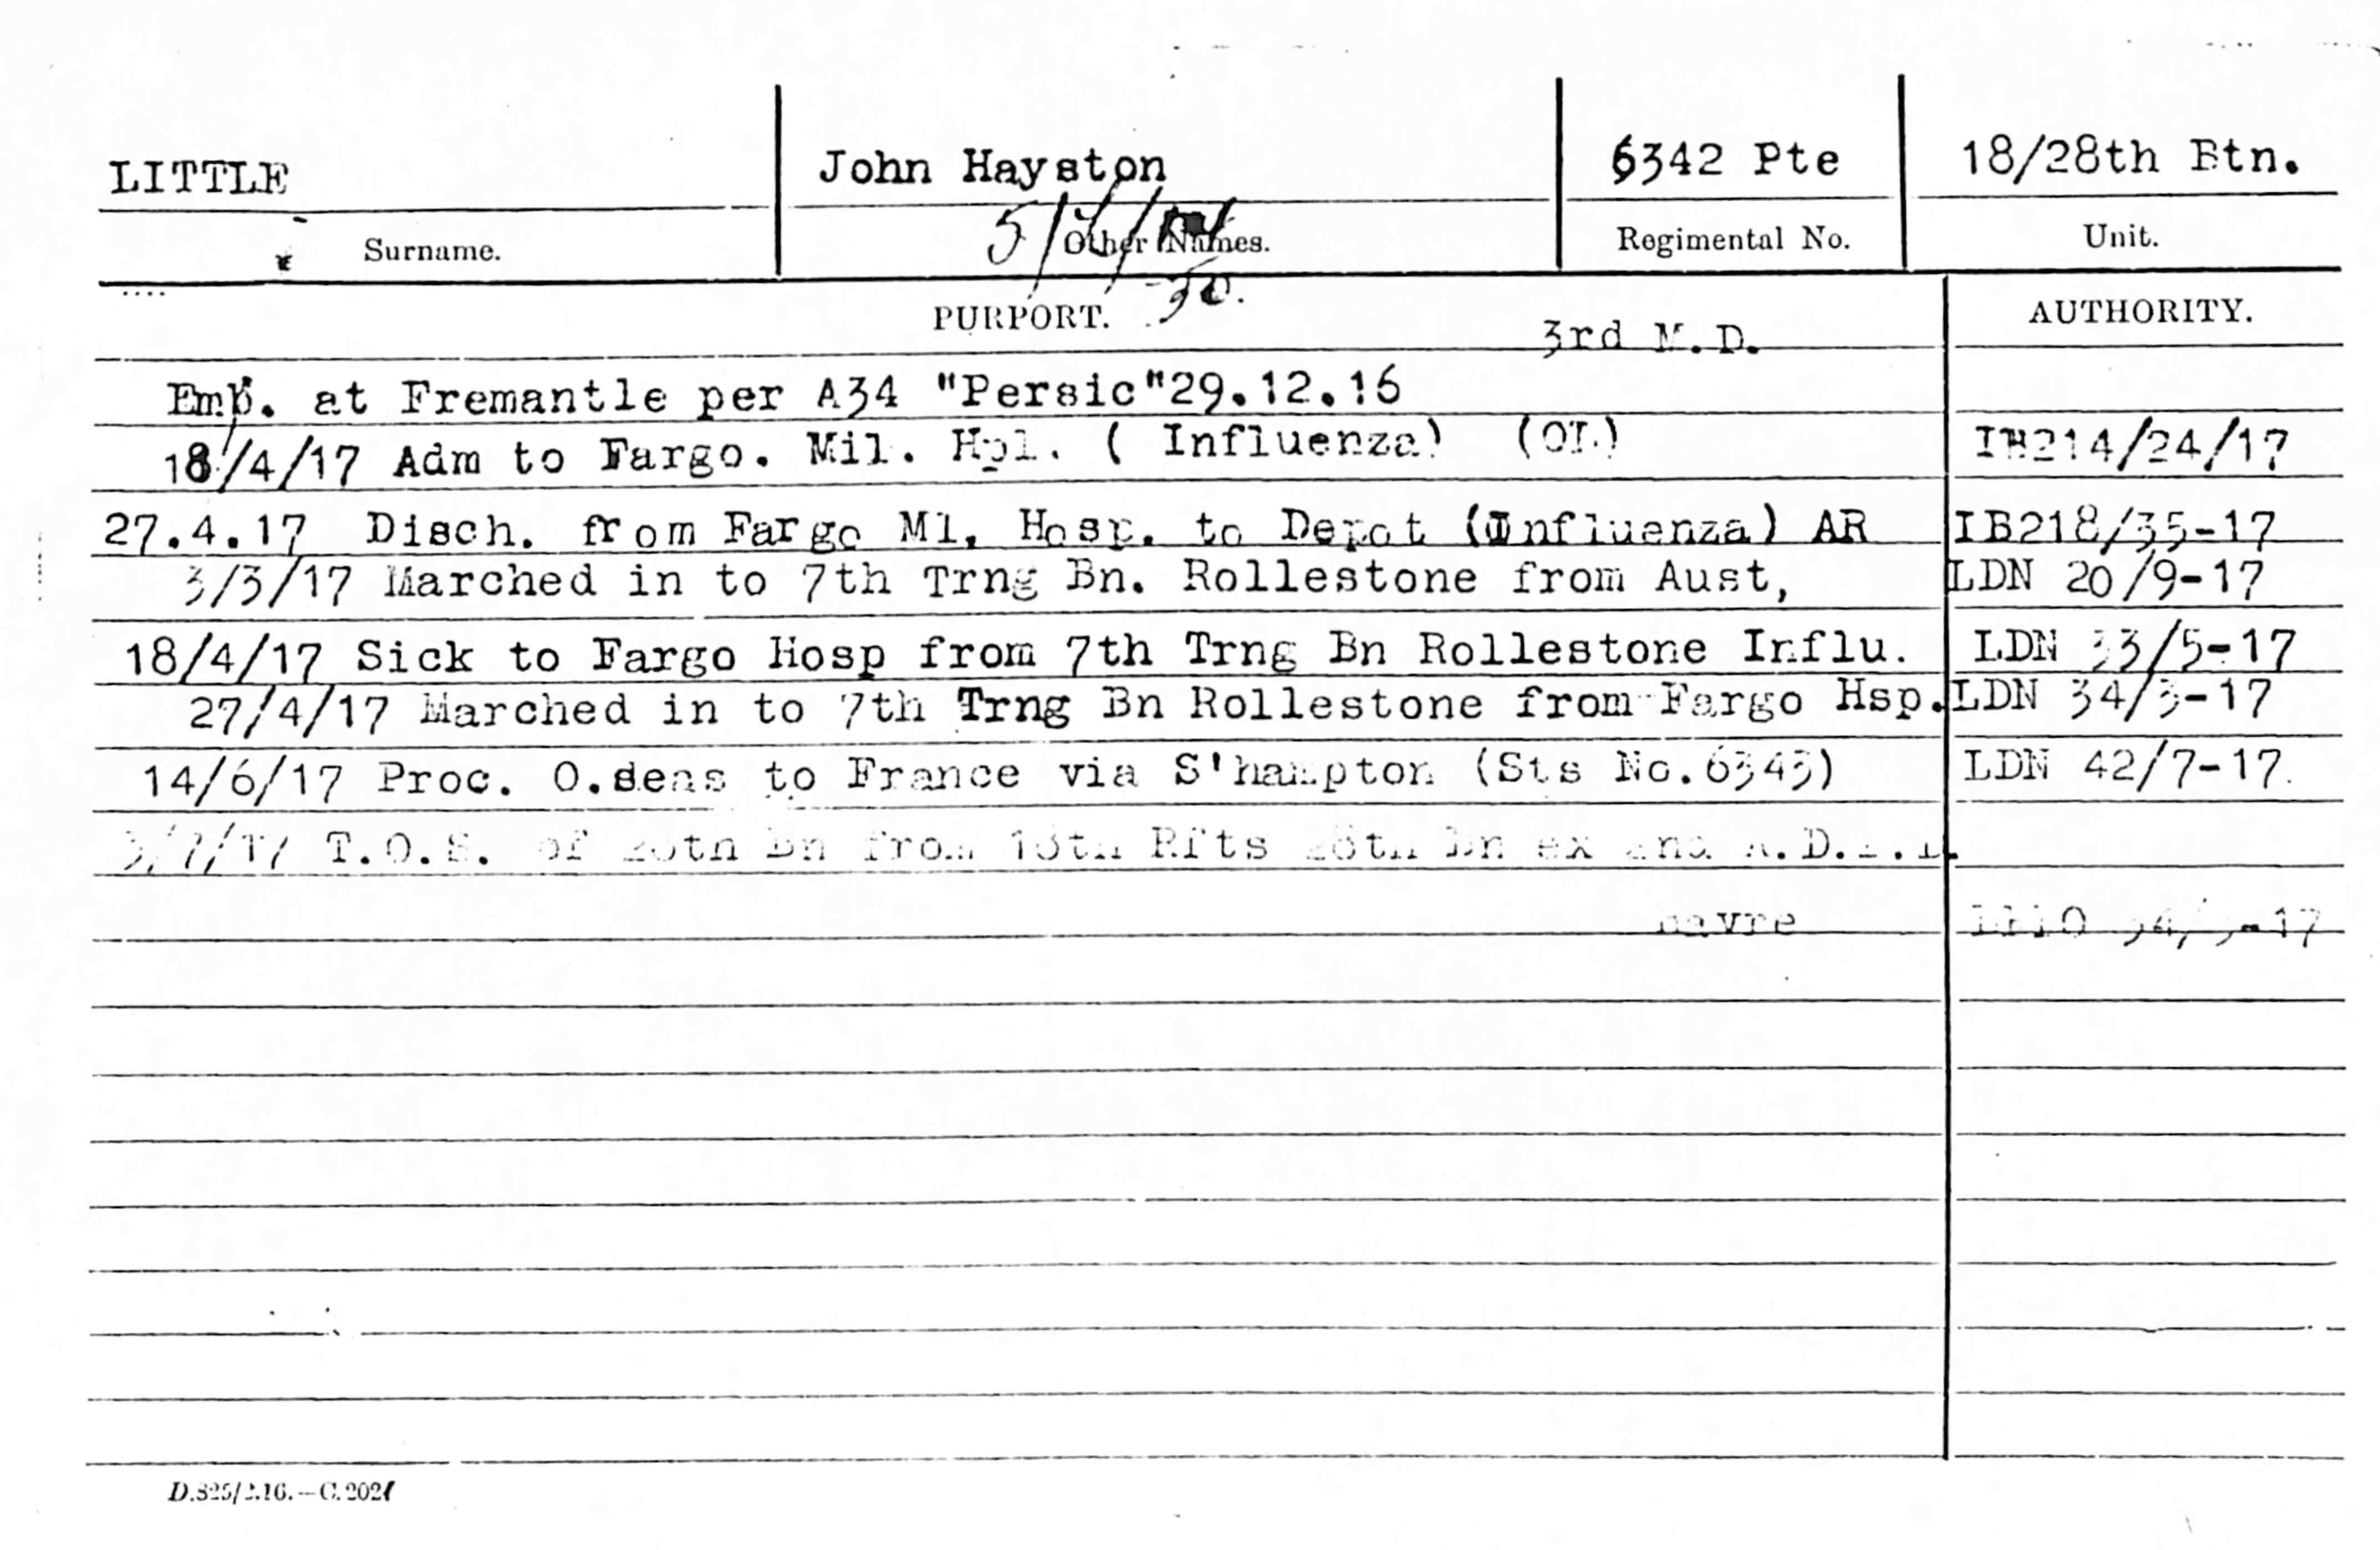 LITTLE John Hayston 6342 Pte 18/28th Btn.
Surname. Other Names. Regimental No. Unit.
PURPORT. AUTHORITY.
3rd M.D.
Emb. at Fremantle per A34 "Persic"29.12.16
18/4/17 Adm to Fargo. Mil. Hpl. ( Influenza) (OL) IB214/24/17
27.4.17 Disch. from Fargo Ml. Hosp. to Depot (Influenza) AR IB218/35-17
3/3/17 Marched in to 7th Trng Bn. Rollestone from Aust, LDN 20/9-17
18/4/17 Sick to Fargo Hosp from 7th Trng Bn Rollestone Influ. LDN 33/5-17
27/4/17 Marched in to 7th Trng Bn Rollestone from Fargo Hsp. LDN 34/3-17
14/6/17 Proc. O.seas to France via S'hampton (Sts No.6343) LDN 42/7-17.
3/7/17 T.O.S. of 28th Bn from 18th Rfts 28th Bn ex 2nd A.D.B.D.
Havre